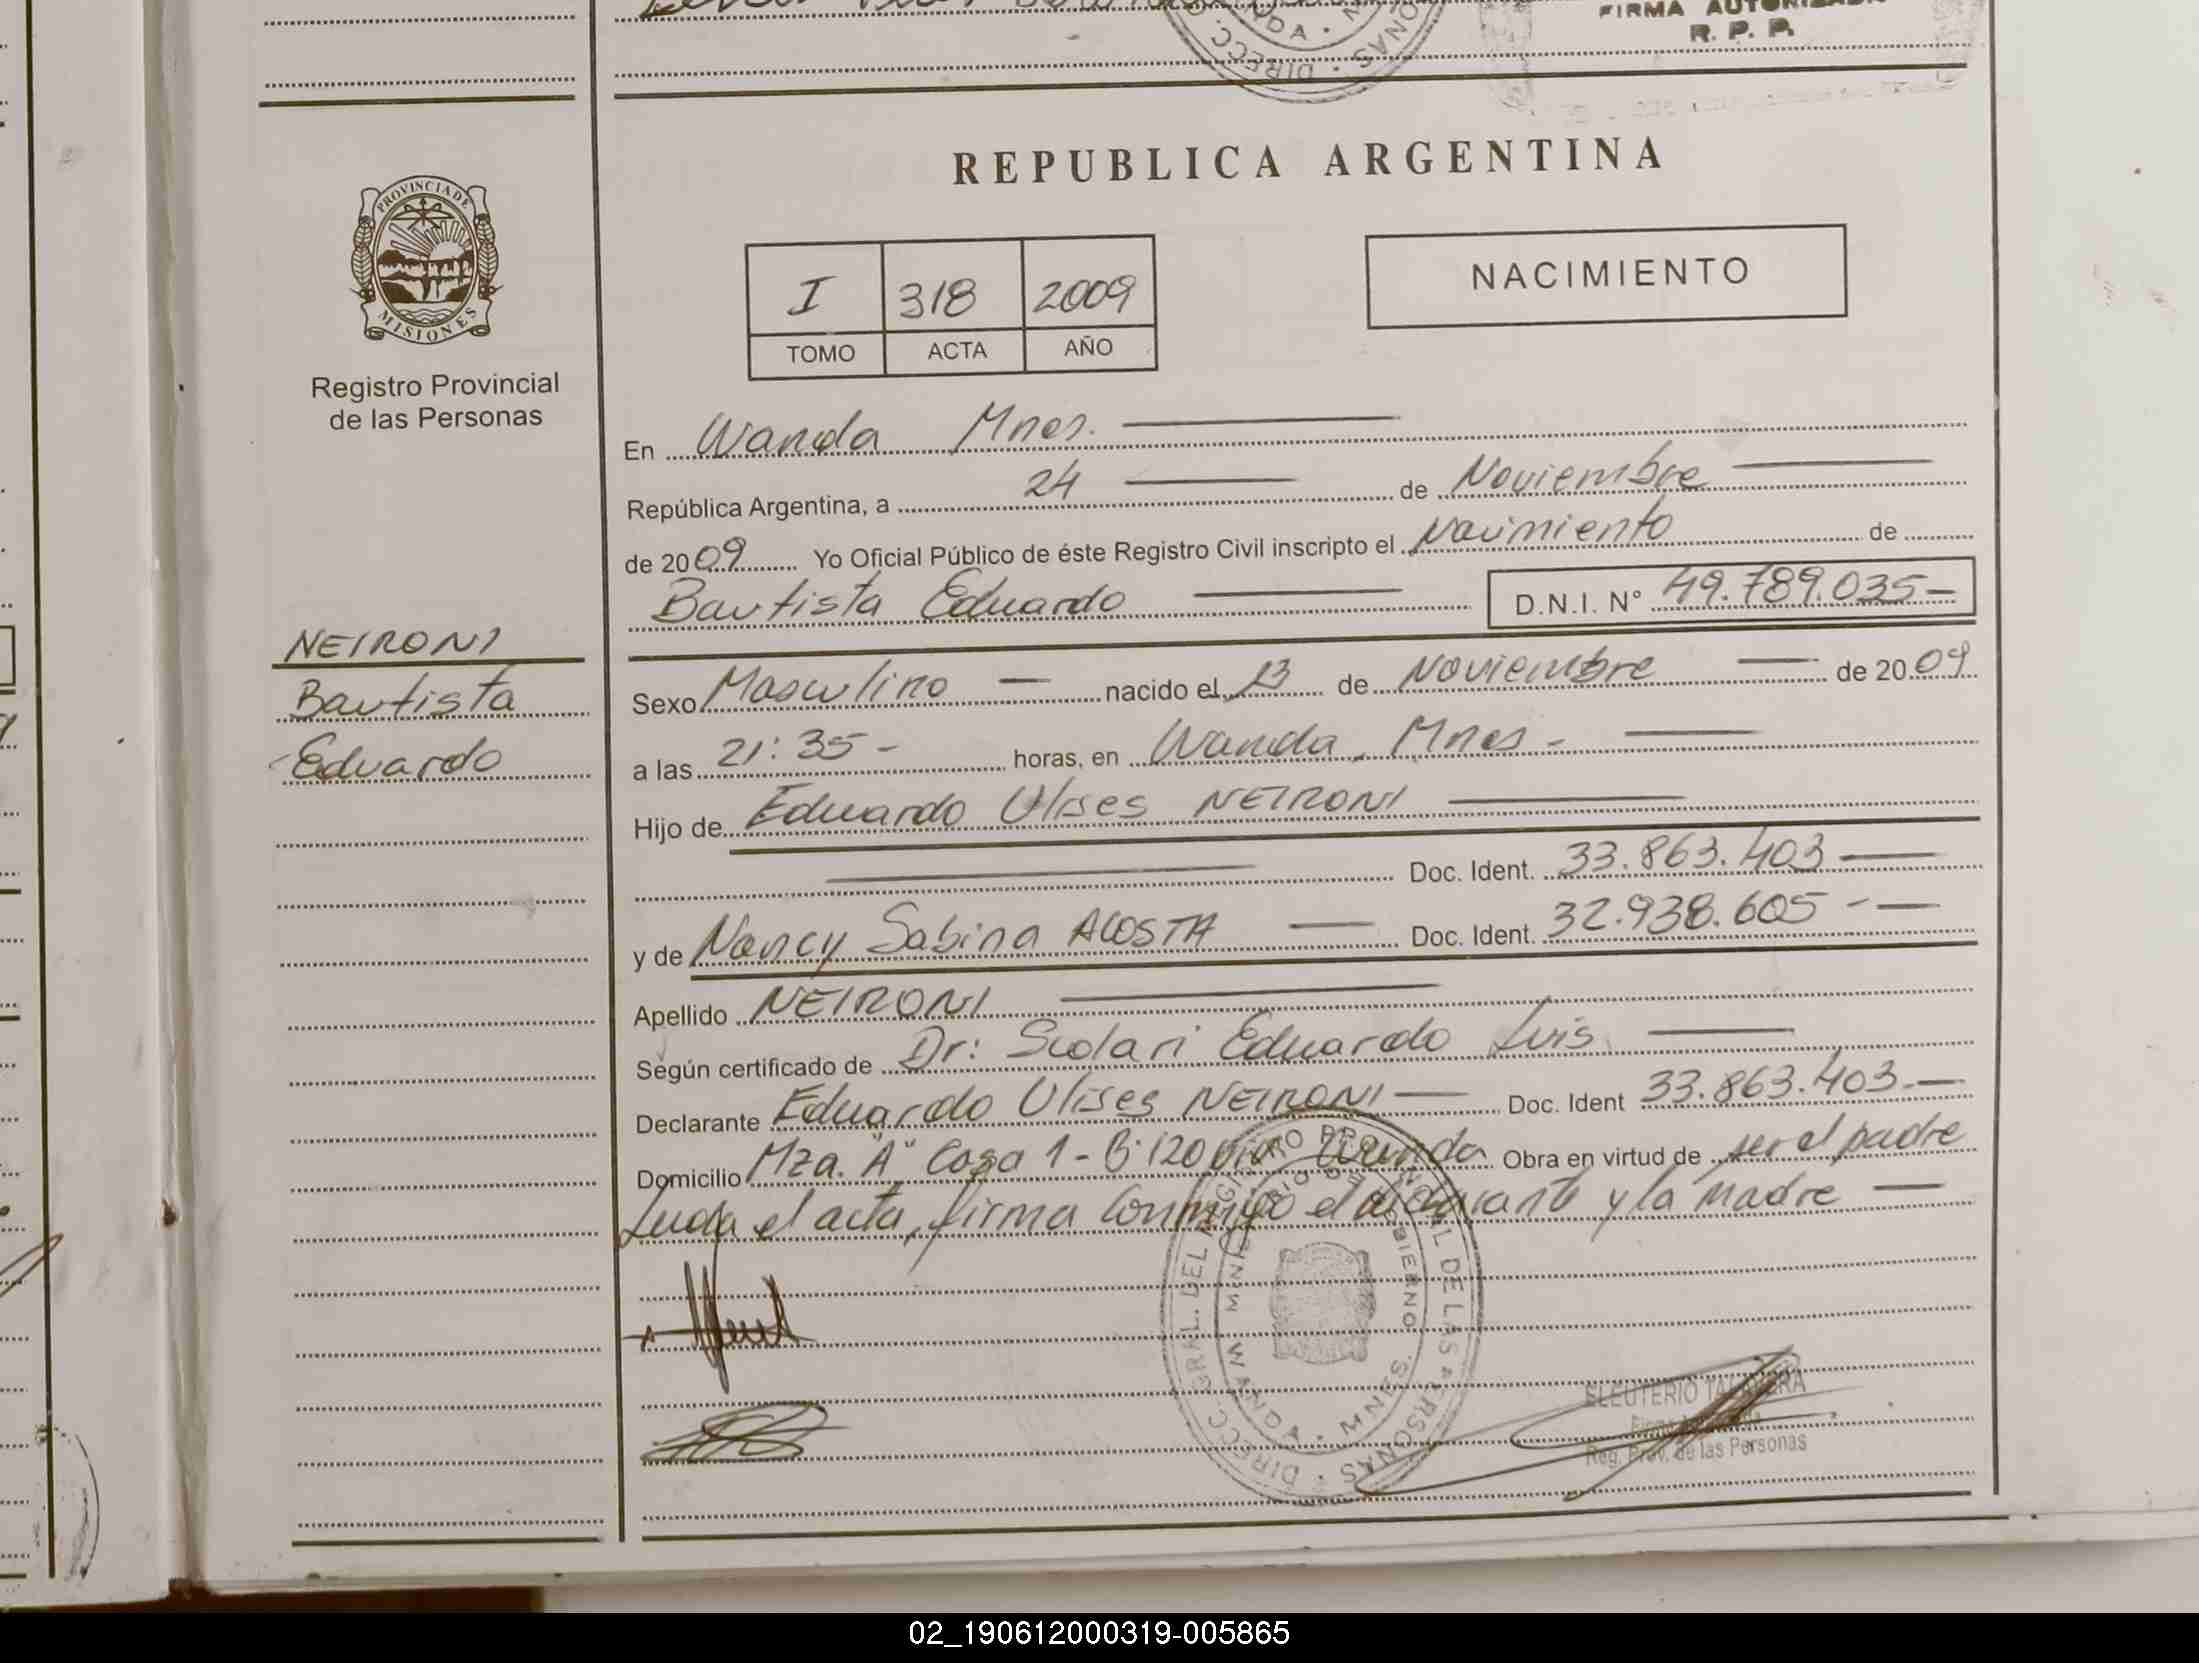 FIRMA AUTORIZADA
R. P. P.
DIRECC.
REPUBLICA ARGENTINA
PROVINCIA DE
MISIONES
Registro Provincial
de las Personas
I 318 2009
TOMO ACTA AÑO
NACIMIENTO
En Wanda Mnes.
República Argentina, a 24 de Noviembre
de 2009 Yo Oficial Público de éste Registro Civil inscripto el Nacimiento de
Bautista Eduardo D.N.I. N° 49.789.035-
NEIRONI
Bautista
Eduardo
Sexo Masculino nacido el 13 de Noviembre de 2009
a las 21:35- horas, en Wanda, Mnes-
Hijo de Eduardo Ulises NEIRONI
Doc. Ident. 33.863.403
y de Nancy Sabina ACOSTA Doc. Ident. 32.938.605-
Apellido NEIRONI
Según certificado de Dr: Scolari Eduardo Luis
Declarante Eduardo Ulises NEIRONI Doc. Ident 33.863.403.-
Domicilio Mza. "A" Casa 1 - B° 120 viv Wanda Obra en virtud de ser el padre
Leída el acta, firma conmigo el declarante y la madre
DIRECC. GRAL. DEL REGISTRO PROVINCIAL DE LAS PERSONAS
MINISTERIO DE GOBIERNO
WANDA - MNES.
ELEUTERIO TALAVERA
Reg. Prov. de las Personas
02_190612000319-005865